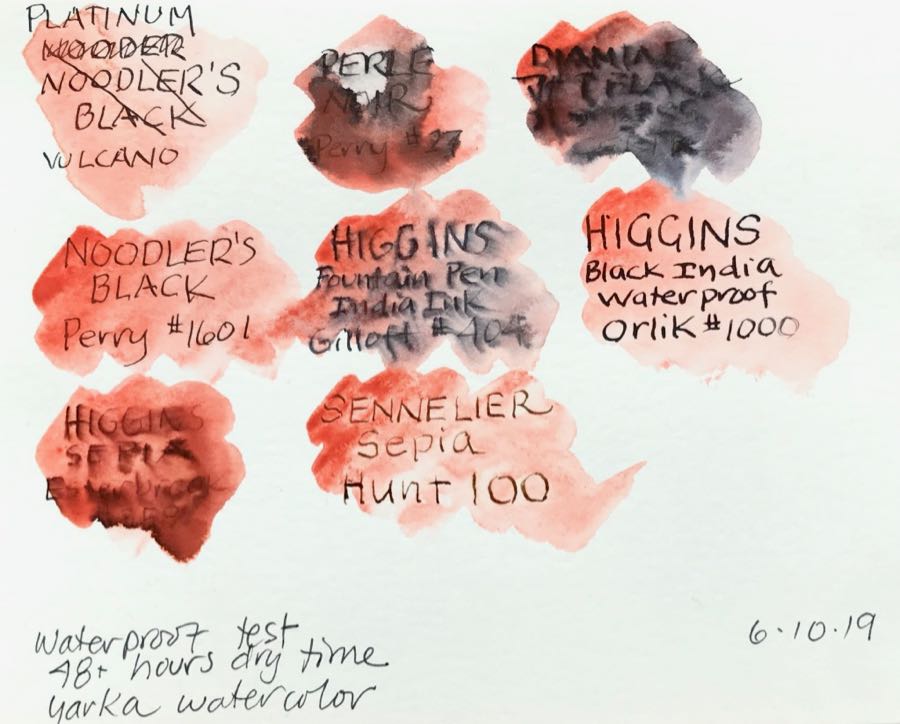 PLATINUM
NOODER
NOODLER'S
BLACK
VULCANO
PERLE
NOIR
Perry #27
DIAMINE
JET BLACK
NOODLER'S
BLACK
Perry #1601
HIGGINS
Fountain Pen
India Ink
Gillott #404
HIGGINS
Black India
waterproof
Orlik #1000
HIGGINS
SEPIA
Esterbrook
SENNELIER
Sepia
Hunt 100
waterproof test
48+ hours dry time
yarka watercolor
6.10.19